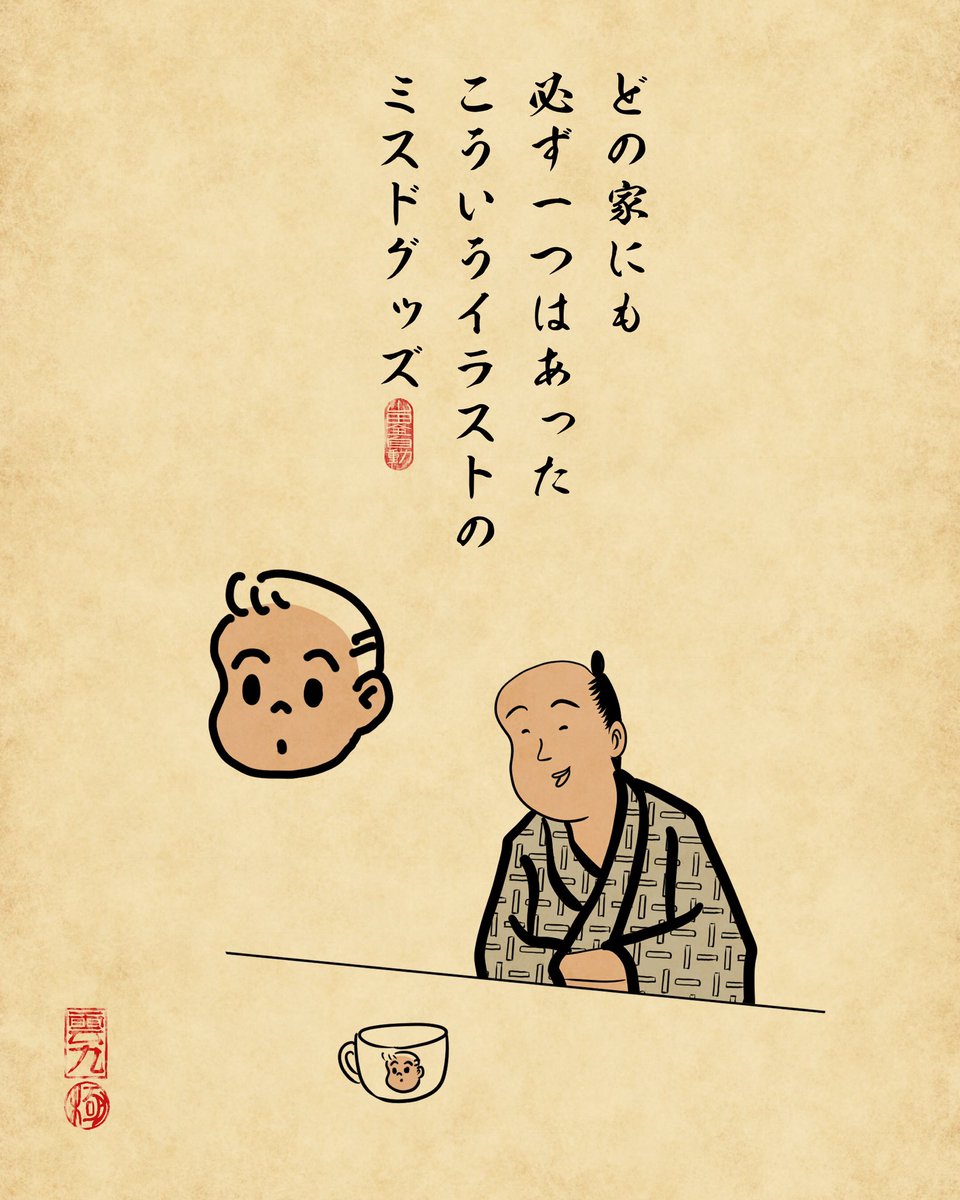 どの家にも
必ず一つはあった
こういうイラストの
ミスドグッズ